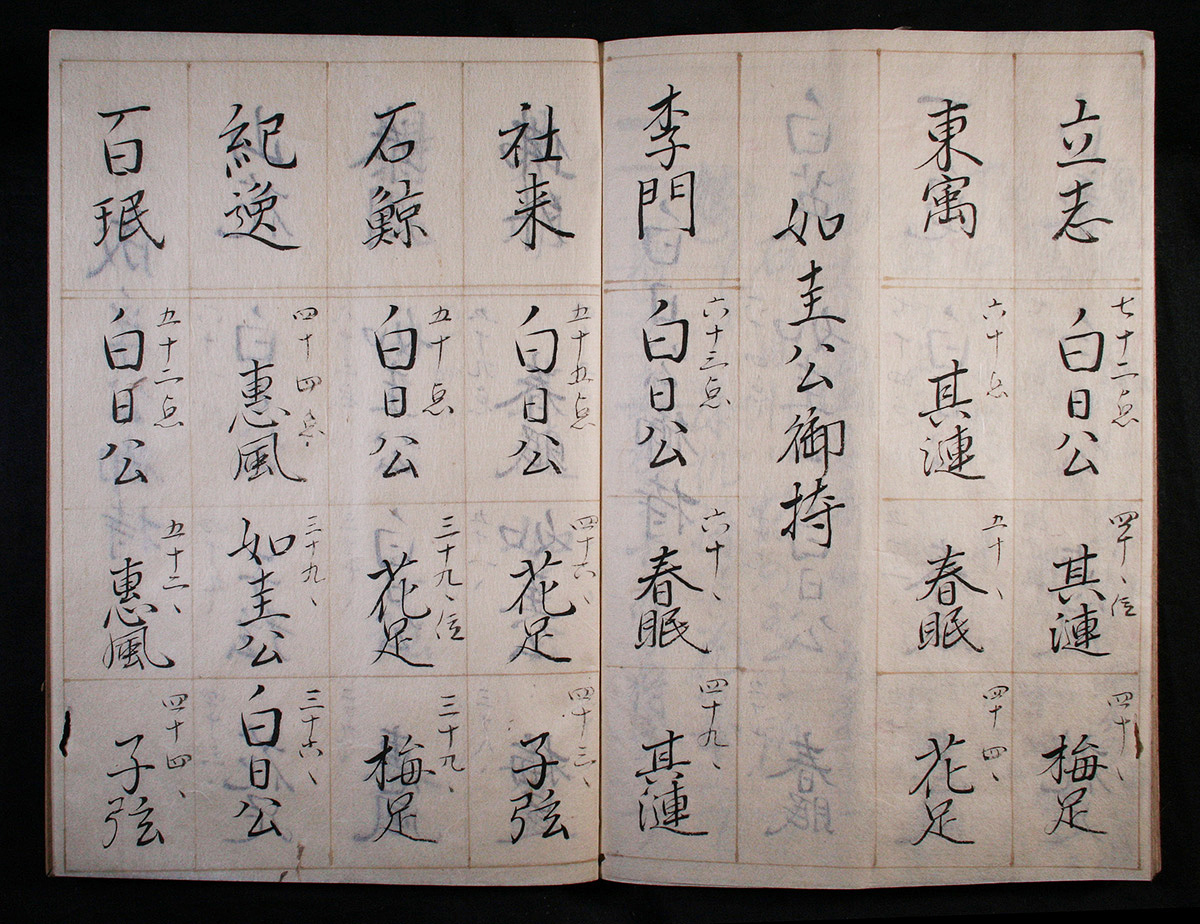 立志
七十二点
白日公
四十、位
其漣
四十、
梅足
東寓
六十点
其漣
五十、
春眠
四十四、
花足
如圭公御持
李門
六十三点
白日公
六十、
春眠
四十九、
其漣
社来
五十五点
白日公
四十六、
花足
四十三、
子弦
石鯨
五十点
白日公
三十九、位
花足
三十九、
梅足
紀逸
四十四点
惠風
三十九、
如圭公
三十六、
白日公
百珉
五十二点
白日公
五十二、
惠風
四十四、
子弦